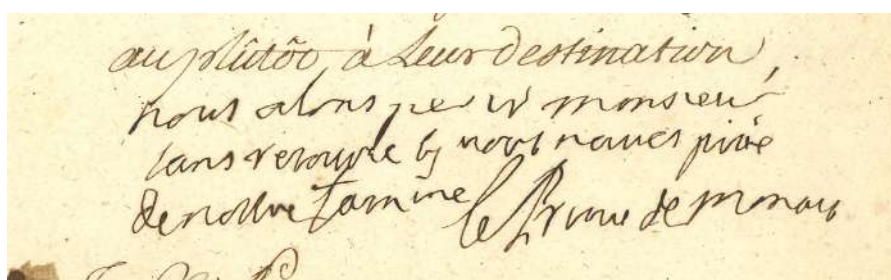 au plûtôt, à Leur destination,
nous alons perir monsieur
sans resource sy vous naves pitie
de nostre famine le Prince de monaco